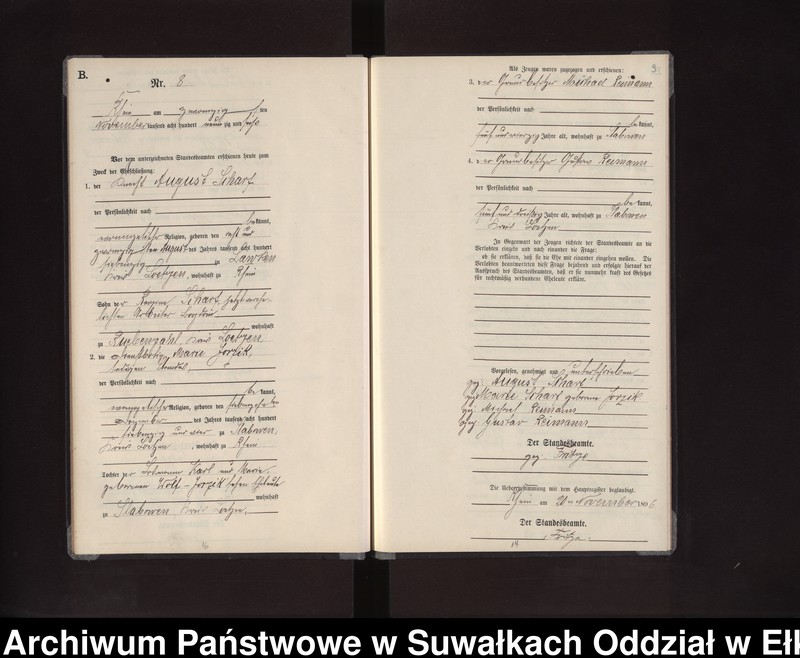 B.
Nr. 8
Rhein am zwanzig ten
November tausend acht hundert neunzig und sechs
Vor dem unterzeichneten Standesbeamten erschienen heute zum
Zweck der Eheschließung:
1. der Knecht August Scharf
der Persönlichkeit nach
be kannt,
evangelischer Religion, geboren den
zwanzigsten August des Jahres tausend acht hundert
siebenzig zu Lawken
Kreis Loetzen, wohnhaft zu Rhein
Sohn der Regine Scharf, jetzt
Arbeiter
wohnhaft
zu Rübenzahl, Kreis Loetzen
2. die Marie Jorzik,
der Persönlichkeit nach
be kannt,
evangelischer Religion, geboren den siebzehnten
Dezember des Jahres tausend acht hundert
siebenzig und vier zu Stabowen,
Kreis Loetzen, wohnhaft zu Rhein
Tochter der Karl und Marie,
geborenen Wolf-Jorzik'schen Eheleute
wohnhaft
zu Stabowen Kreis Loetzen.
16
Als Zeugen waren zugezogen und erschienen:
9
3. der Grundbesitzer Michael Reimann
der Persönlichkeit nach
be kannt,
fünf und vierzig Jahre alt, wohnhaft zu Stabowen
4. der Grundbesitzer Gustav Reimann
der Persönlichkeit nach
be kannt,
fünf und dreißig Jahre alt, wohnhaft zu Stabowen
Kreis Loetzen.
In Gegenwart der Zeugen richtete der Standesbeamte an die
Verlobten einzeln und nach einander die Frage:
ob sie erklären, daß sie die Ehe mit einander eingehen wollen. Die
Verlobten beantworteten diese Frage bejahend und erfolgte hierauf der
Ausspruch des Standesbeamten, daß er sie nunmehr kraft des Gesetzes
für rechtmäßig verbundene Eheleute erkläre.
Vorgelesen, genehmigt und unterschrieben
gez. August Scharf
gez. Marie Scharf geborene Jorzik
gez. Michael Reimann
gez. Gustav Reimann
Der Standesbeamte.
gez. Fritze
Die Uebereinstimmung mit dem Hauptregister beglaubigt.
Rhein am 20ten November 1896
Der Standesbeamte.
Fritze.
14
Archiwum Państwowe w Suwałkach Oddział w Ełk